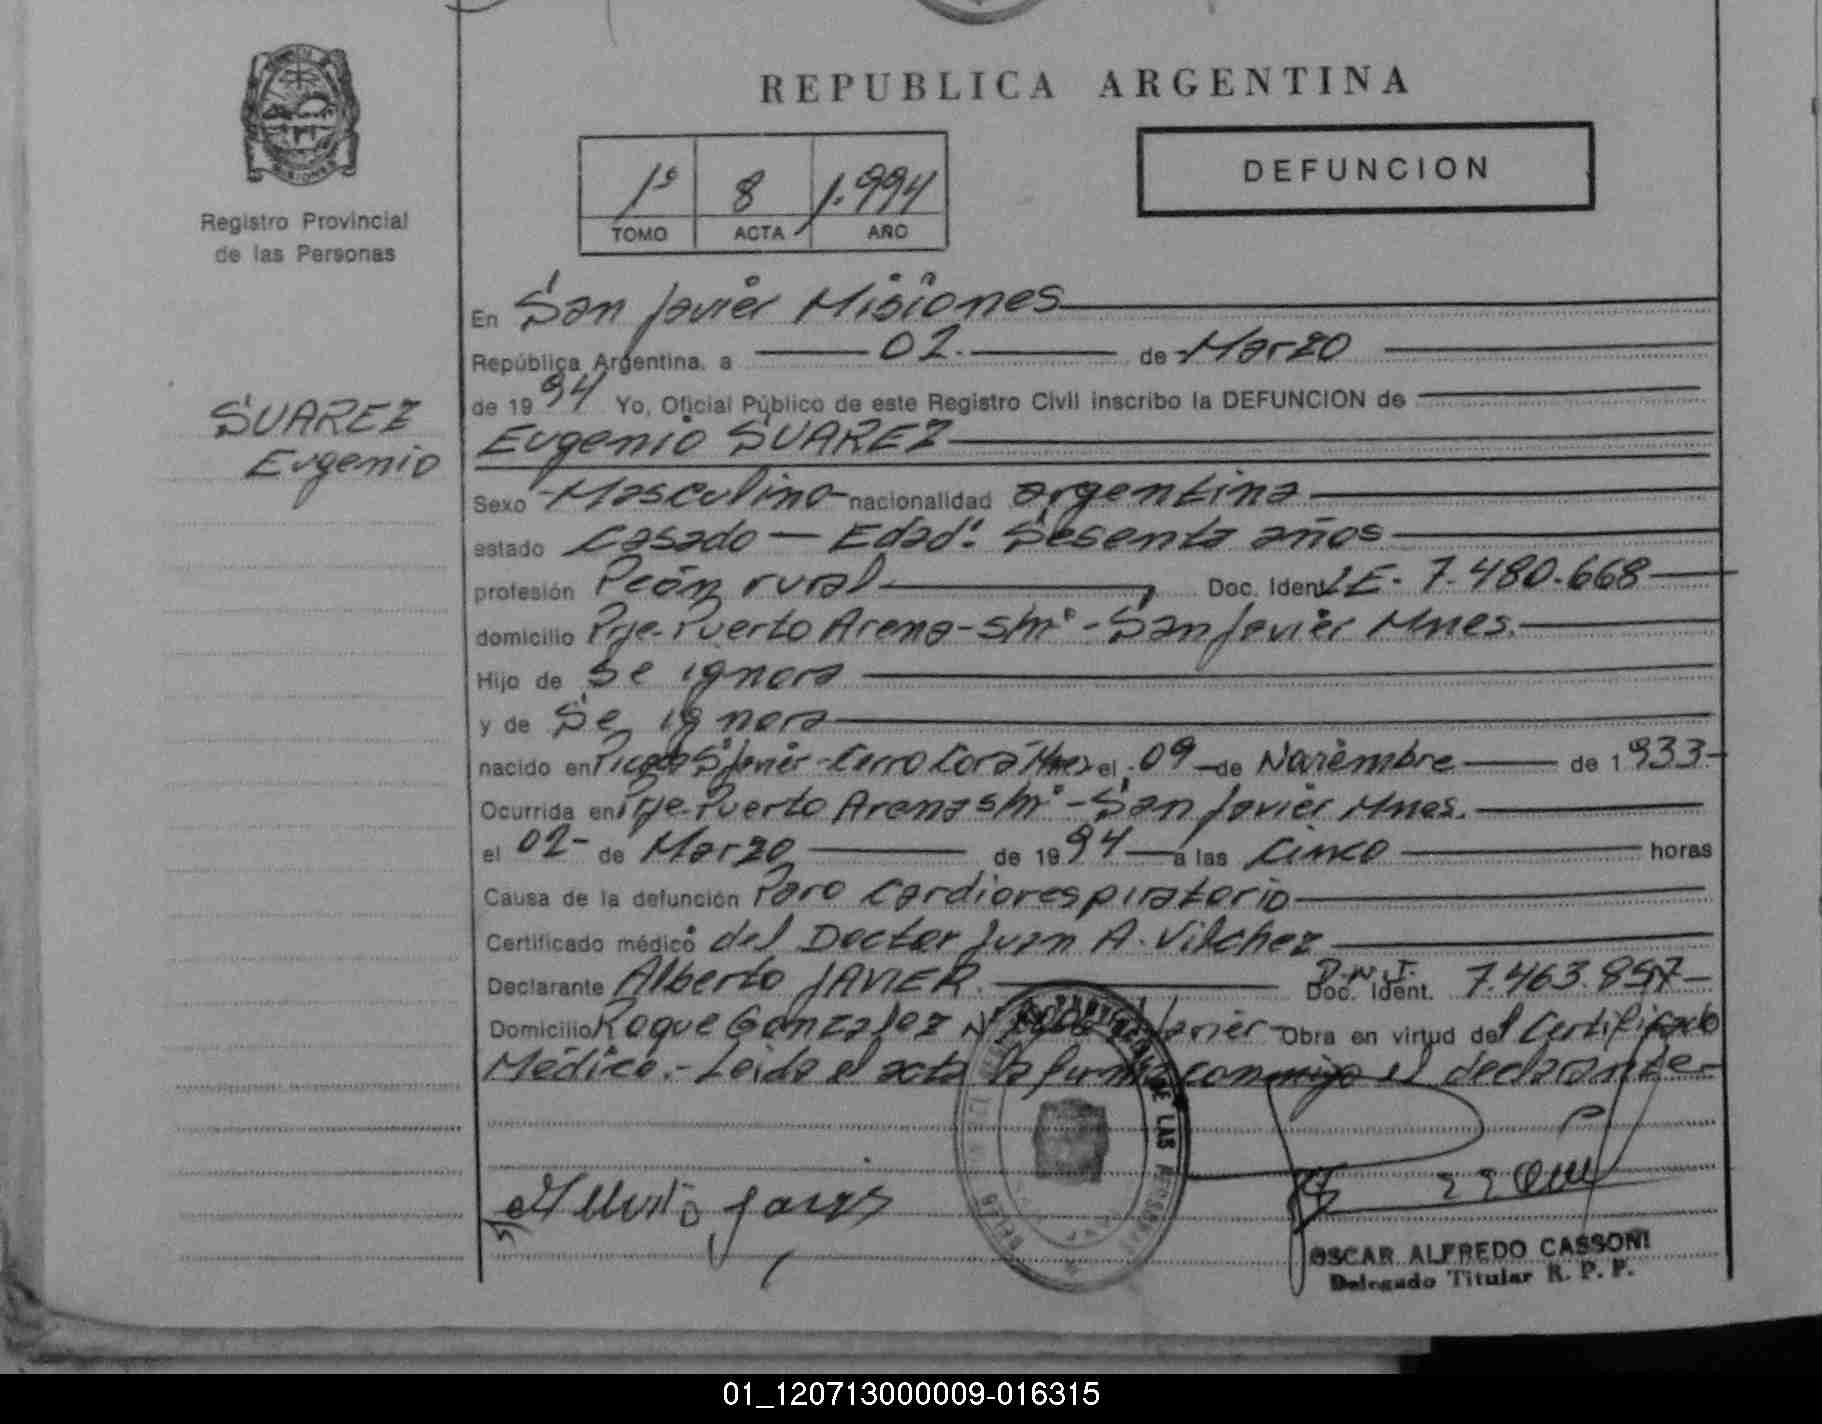 REPUBLICA ARGENTINA
MISIONES
Registro Provincial
de las Personas
1º 8 1.994
TOMO ACTA AÑO
DEFUNCION
SUAREZ
Eugenio
En San Javier Misiones
República Argentina, a 02. de Marzo
de 1994 Yo, Oficial Público de este Registro Civil inscribo la DEFUNCION de
Eugenio SUAREZ
Sexo Masculino nacionalidad argentina
estado Casado - Edad: Sesenta años
profesión Peón rural, Doc. Ident. LE. 7.480.668
domicilio Pje. Puerto Arena - s/nº - San Javier Mnes.
Hijo de Se ignora
y de Se ignora
nacido en Cerro Corá Mnes el 09 de Noviembre de 1933
Ocurrida en Pje. Puerto Arena s/nº - San Javier Mnes.
el 02 de Marzo de 1994 a las Cinco horas
Causa de la defunción Paro Cardiorespiratorio
Certificado médico del Doctor Juan A. Vilchez
Declarante Alberto JAVIER. D.N.I. Doc. Ident. 7.463.857
Domicilio Roque Gonzalez Javier Obra en virtud del Certificado
Médico.- Leida el acta la firma conmigo el declarante-
Alberto
OSCAR ALFREDO CASSONI
Delegado Titular R. P. P.
DE LAS
01_120713000009-016315